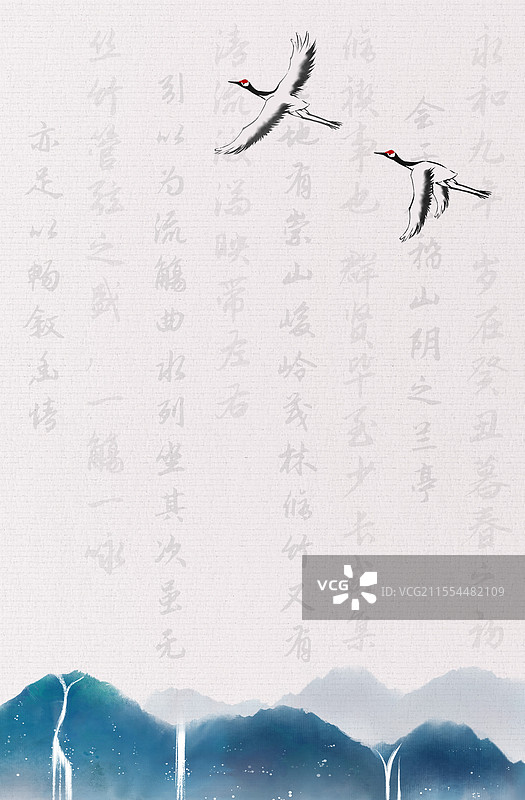 永和九年 岁在癸丑暮春之初
会于 稽山阴之兰亭
修禊事也 群贤毕至少长 集
地有崇山峻岭茂林修竹又有
清流激湍映带左右
引以为流觞曲水列坐其次虽无
丝竹管弦之盛,一觞一咏
亦足以畅叙幽情
VCG
视觉中国
ID:VCG211554482109